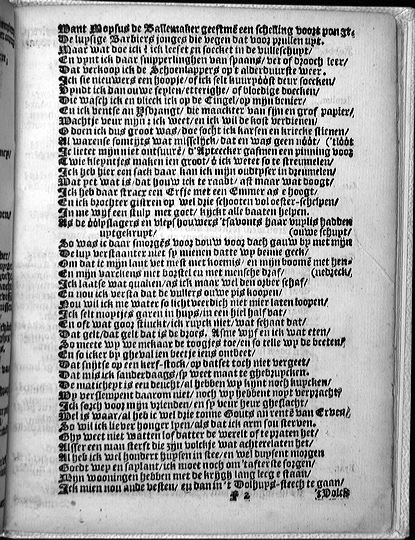 Want Mopsus de Ballemaker geeftmẽ een schelling voort pongt:
De luysige Barbiers jonges die vegen dat voor pruilen upt.
Maar wat doe ick? ick leeset zn soecket in de vullisschuyt/
En vynt ick daar snipperlinghen van spaans/ vet of drooch leer/
Dat verkoop ick de Schoenlappers op 't alderduurste weer.
Ick sie nieuwers een hoopje/ of ick self kuurpoost deur soecken/
Vyndt ick dan ouwe seylen/ etterighe/ of bloedige doecken/
Die wasch ick en bleeck ick op de Cingel/ op mijn benier/
En ick bentse an Ysbrangt/ die maackter van fijn en grof papier/
Wachtje veur mijn: ick weet/ en ick wil de kost verdienen/
O doen ick bus groot was/ doe socht ick karsen en kriecke stienen/
Al warense somtijts wat misselijck/ dat en was geen noot/
Je lieter mijn niet om suure/ d'Apteecker gafmer een pinning voor
Twie kleyntjes maken ien groot/ ô ick weetet so te streumelen/
Ick heb hier een sack daar kan ick mijn oudtyser in dreumelen/
Wat pet wat is dat/ houw ick te raabt/ ast maar wat doogt/
Ick heb daar straer een Erfje met een Emmer as e hoogt/
En ick brochter gistren op wel drie schooten vol oester-schelpen/
In me wijf een stulp met goet/ kijckt alle baaten helpen.
As de doolpslagers en vleys houwers t'savonts haar vuylis hadden
uytgekrupt/ (ouwe schupt/
So was ic daar smorgẽs voor douw voor dach gauw by met mijn
De lup verstaanter niet sy mienen datte wy benne geck/
Om dat ic mijn lant vet mest met koemis en mijn boomẽ met hen-
En mijn varckens met borstel en met mensche draf/ (nedreck/
Ick laatse wat quaken/ as ick maar wel den orber schaf/
En nou ick versta dat de vullers ouwe pis koopen/
Nou wil ick me water so lichtveerdich niet mier laten loopen/
Ick selt moptjes garen in huys/ in een hiel half vat/
En oft wat goor stinckt/ ick ruyck niet/ wat schaat dat/
Dat gelt/ dat gelt dat is de droes. Asme wijf en ick wat eten/
So meete wy we mekaar de toogjes toe/ en so telle wy de beeten/
En so icker by gheval ien beetje iens ontbeet/
Dat snijtse op een kerf-stock/ op datset toch niet vergeet/
Dat mis ick sanderdaags/ sy weet maat te ghebruycken.
De maticheyt is een deucht/ al hebben wy kijnt noch kuycken/
Wy verslempent daarom niet/ noch wy hebbent nopt verpracht/
Ick sorch voor mijn vrienden/ en sy veur heur gheslacht/
Wel is waar/ al heb ic wel drie tonne Gouts an rentẽ van Erven/
So wil ick liever honger lyen/ als dat ick arm sou sterven.
Ghy weet niet watten lof datter de werelt of te praten het/
Alsser een man sterft die zijn volckje wat achterelaten het/
Al heb ick wel hondert huysen in stee/ en wel duysent morgen
Goedt wey en saylant/ ick moet noch om t'afterste sorgen/
Mijn wooningen hebben met de krijgh lang leeg e staan/
Ick mien nou ande vesten/ en dan in 't Dolhuys-steech te gaan/
F 2 't Volck